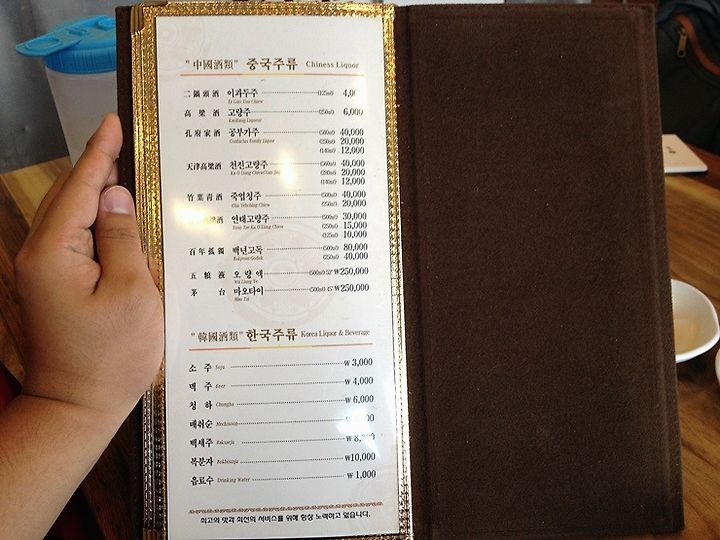 "中國酒類" 중국주류 Chiness Liquor
二鍋頭酒 이과두주 (125㎖) 4,0
Er Guo Tou Chiew
高粱酒 고량주 (125㎖) 6,000
Kaoliang Liqueur
孔府家酒 공부가주 (500㎖) 40,000
Confucius Family Liquor (250㎖) 20,000
(140㎖) 12,000
天津高粱酒 천진고량주 (560㎖) 40,000
(280㎖) 20,000
(140㎖) 12,000
竹葉青酒 죽엽청주 (500㎖) 40,000
Chu Yehching Chiew (250㎖) 20,000
粱酒 연태고량주 (500㎖) 30,000
Yeon Tae Ka O Liang Chiew (250㎖) 15,000
(125㎖) 10,000
百年孤獨 백년고독 (500㎖) 80,000
(250㎖) 40,000
五粮液 오량액 (500㎖) 52° ₩250,000
Wu Liang Ye
茅台 마오타이 (500㎖) 45° ₩250,000
Mao Tai
"韓國酒類" 한국주류 Korea Liquor & Beverage
소주 Soju ₩ 3,000
맥주 Beer ₩ 4,000
청하 Chungha ₩ 6,000
매취순 Mechisoon
백세주 ₩ 8,
복분자 Bokbunja ₩10,000
음료수 Drinking Water ₩ 1,000
최고의 맛과 최선의 서비스를 위해 항상 노력하고 있습니다.